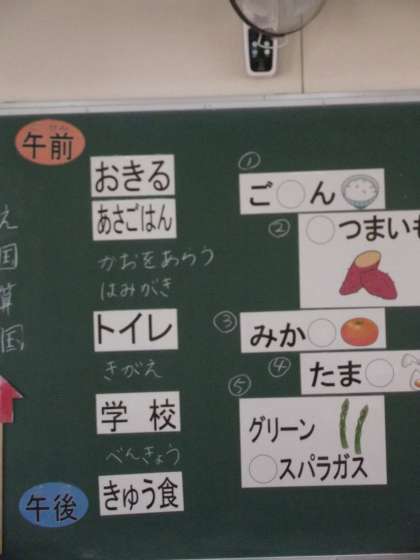 午前
ぜん
え
国
算
国
おきる
あさごはん
かおをあらう
はみがき
トイレ
きがえ
学校
べんきょう
きゅう食
午後
①
ご○ん
②
○つまいも
③
みか○
④
たま○
⑤
グリーン
○スパラガス